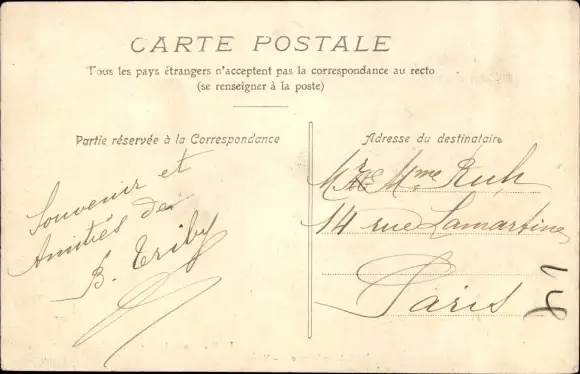 CARTE POSTALE
Tous les pays étrangers n'acceptent pas la correspondance au recto
(se renseigner à la poste)
Partie réservée à la Correspondance
Souvenir et
Amitiés de
B. Triby
Adresse du destinataire
Mme Ruh
14 rue Lamartine
Paris